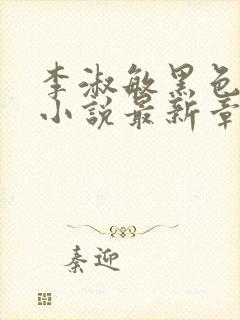 李淑敏黑色
小說最新章
秦迎